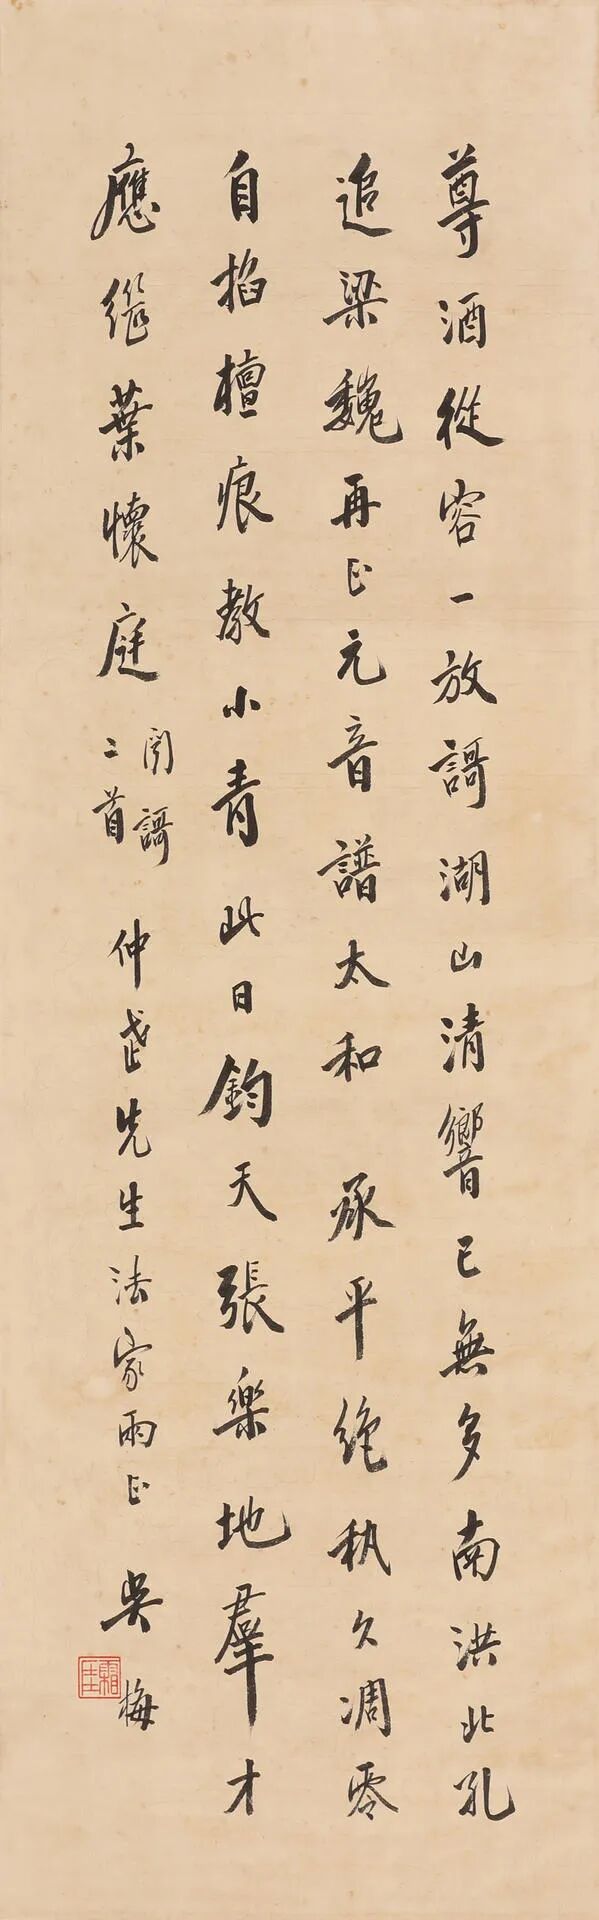 尊酒從容一放謌湖山清響已無多南洪北孔
追梁魏再正元音譜太和 承平絶執久凋零
自掐檀痕教小青此日鈞天張樂地羣才
應繼葉懷庭
謌
二首
仲 先生法家雨正 吳梅
霜厓